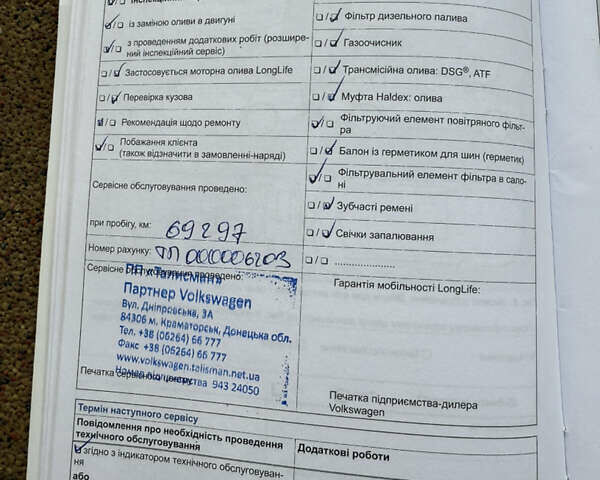 із заміною оливи в двигуні
з проведенням додаткових робіт (розширений
інспекційний сервіс)
Застосовується моторна олива LongLife
Перевірка кузова
Рекомендація щодо ремонту
Побажання клієнта
(також відзначити в замовленні-наряді)
Сервісне обслуговування проведено:
при пробігу, км: 69297
Номер рахунку: ТП000006203
Сервісне обслуговування проведено:
ПП «Талисман»
Партнер Volkswagen
Вул. Дніпровська, 3А
84306 м. Краматорськ, Донецька обл.
Тел. +38 (06264) 66 777
Факс +38 (06264) 66 777
www.volkswagen.talisman.net.ua
Номер партнерства 943 24050
Печатка сервісного центру
Фільтр дизельного палива
Газоочисник
Трансмісійна олива: DSG®, ATF
Муфта Haldex: олива
Фільтруючий елемент повітряного фільт-
ра
Балон із герметиком для шин (герметик)
Фільтрувальний елемент фільтра в сало-
ні
Зубчасті ремені
Свічки запалювання
....................
Гарантія мобільності LongLife:
Печатка підприємства-дилера
Volkswagen
Термін наступного сервісу
Повідомлення про необхідність проведення
технічного обслуговування
Додаткові роботи
згідно з індикатором технічного обслуговуван-
ня
або